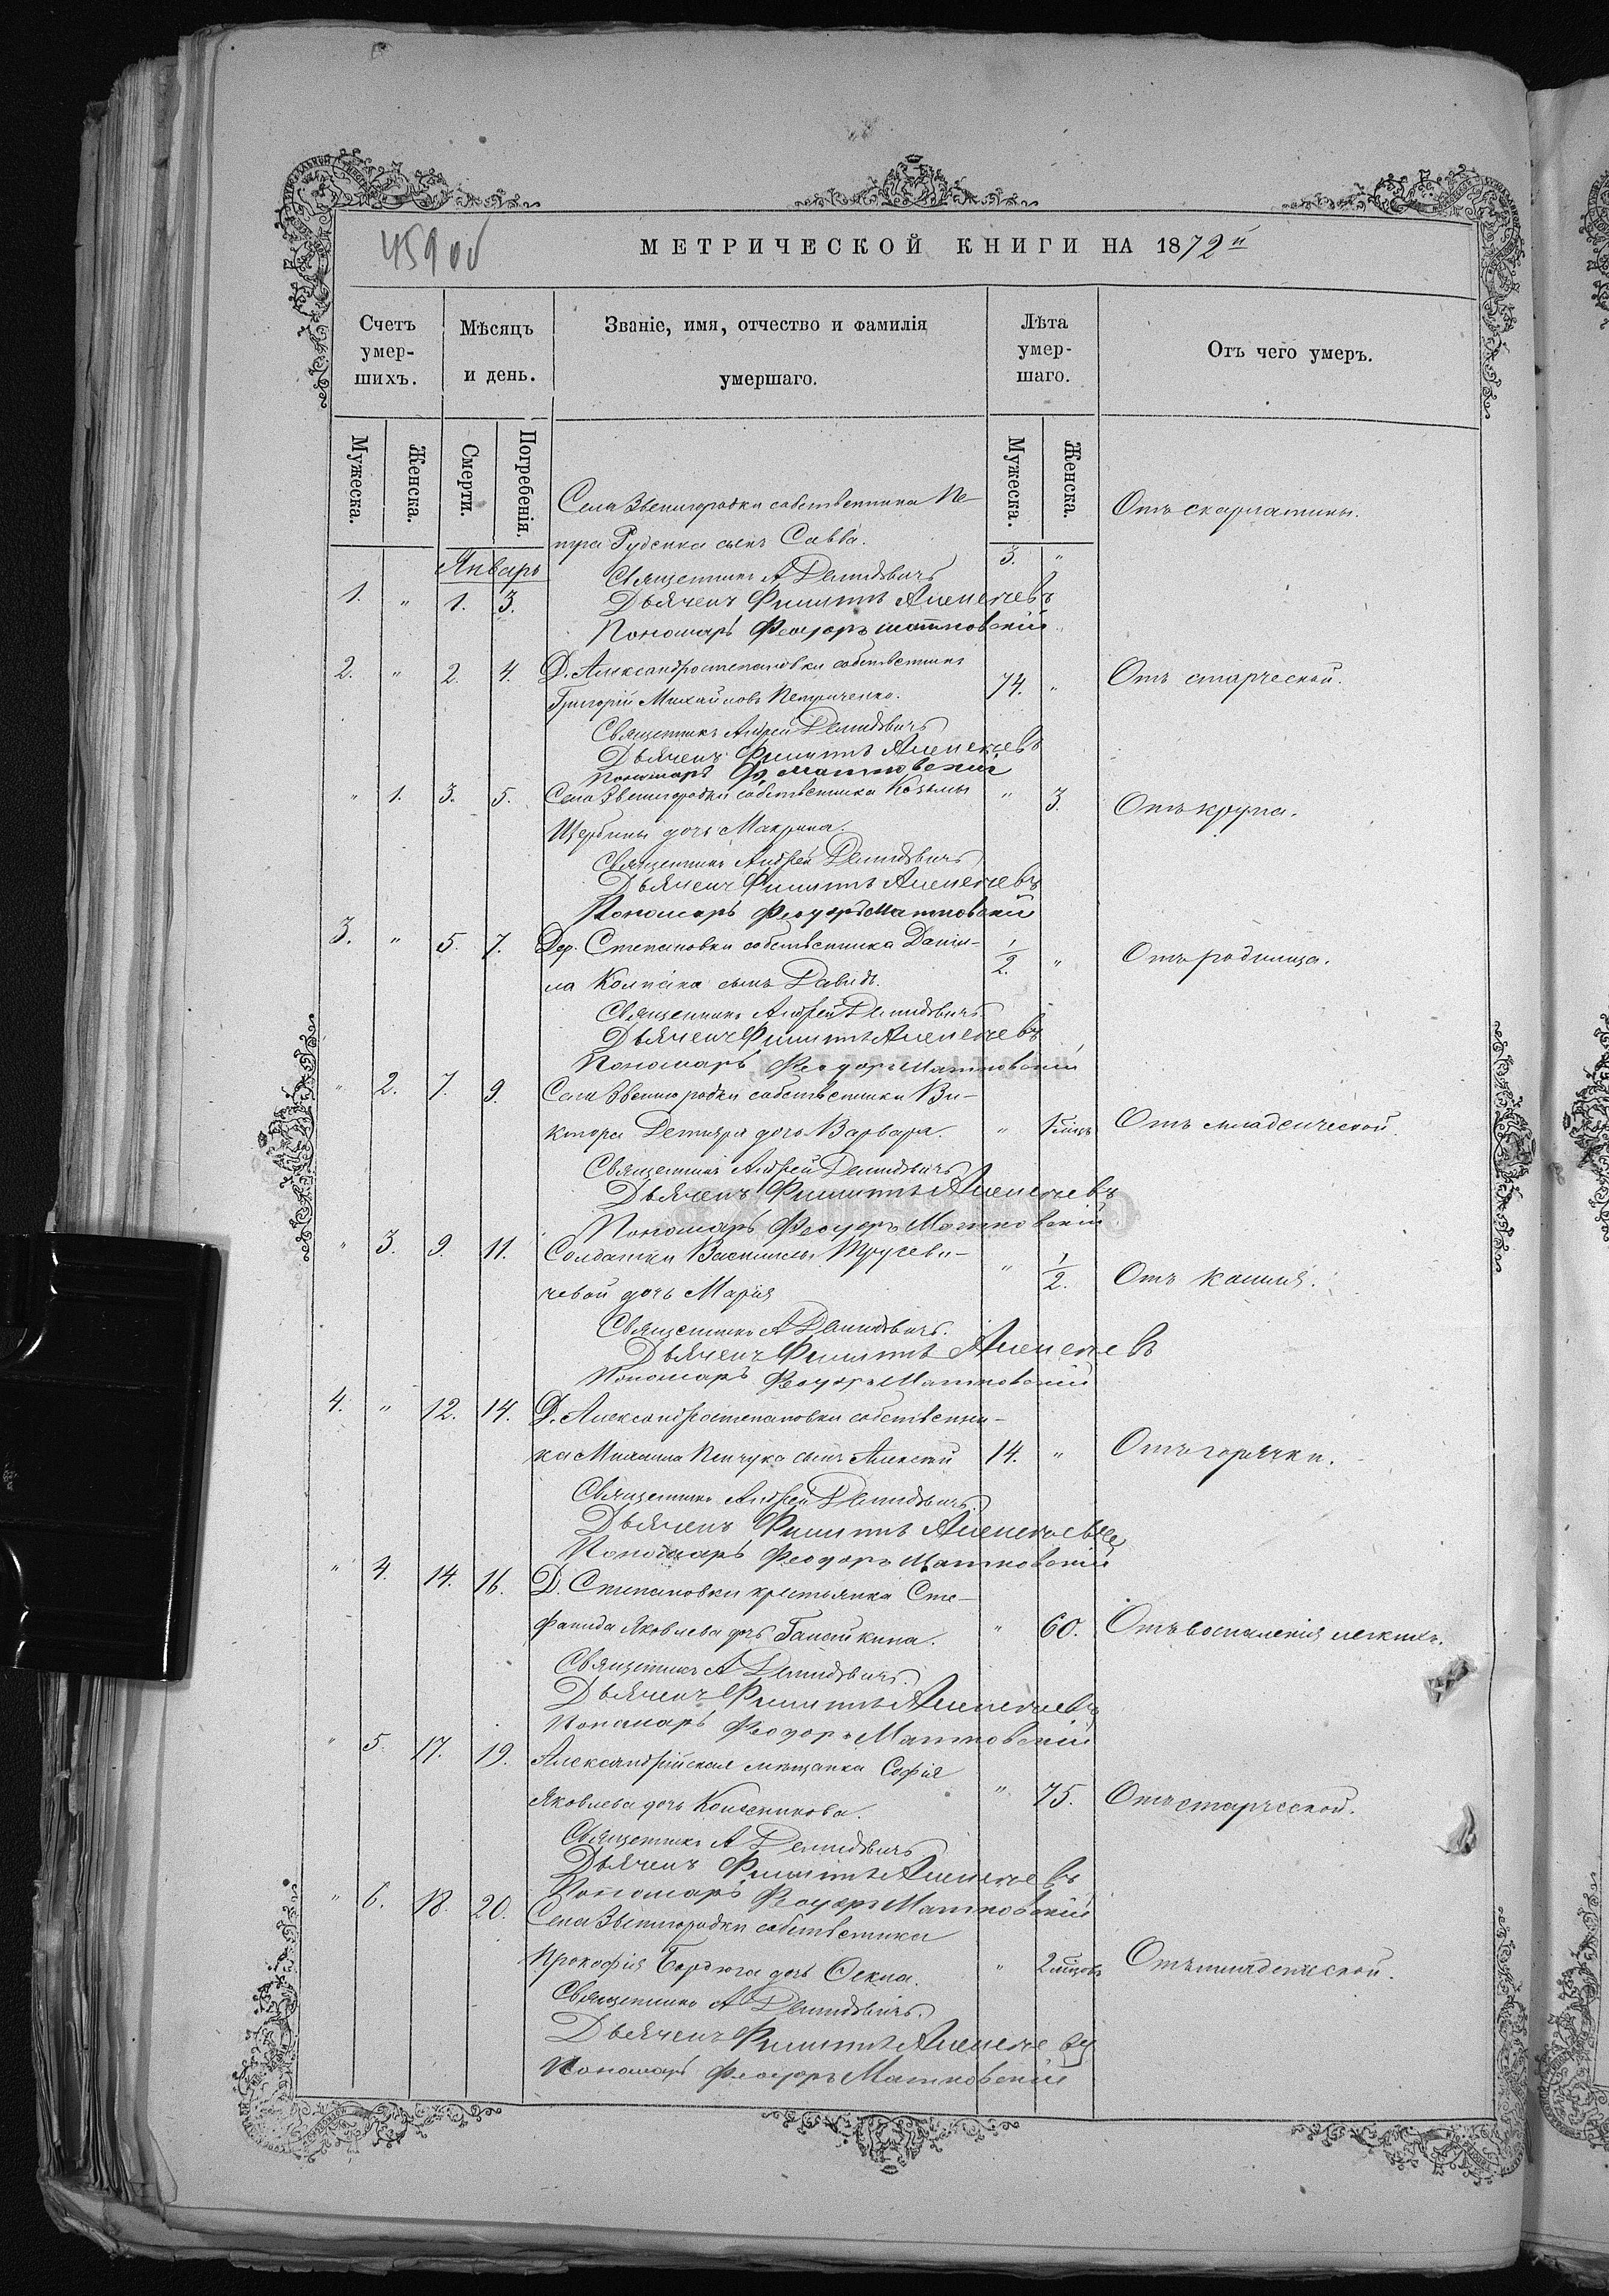 459 об
МЕТРИЧЕСКОЙ КНИГИ НА 1872й
Счетъ умер-шихъ.
Мѣсяцъ и день.
Званіе, имя, отчество и фамилія умершаго.
Лѣта умер-шаго.
Отъ чего умеръ.
Мужеска.
Женска.
Смерти.
Погребенія.
Мужеска.
Женска.
Январь
Села Звенигородки собственника Пе-
1. " 1. 3. тра Руденка сынъ Савва. 3. " Отъ скарлатины.
Священникъ А Демидовичъ
Дьячекъ Филиппъ Алексѣевъ
Пономарь Феодоръ Матковскій
2. " 2. 4. Д. Александростепановки собственникъ
Григорій Михайловъ Петриченко. 74. " Отъ старческой.
Священникъ Андрей Демидовичъ
Дьячекъ Филиппъ Алексѣевъ
Пономарь Ф. Матковскій
" 1. 3. 5. Села Звенигородки собственника Козьмы " 3. Отъ крупа.
Щербины дочь Макрина.
Священникъ Андрей Демидовичъ
Дьячекъ Филиппъ Алексѣевъ
Пономарь Феодоръ Матковскій
3. " 5. 7. Дер. Степановки собственника Дани- 1/2. " Отъ родимца.
ла сынъ Давидъ.
Священникъ Андрей Демидовичъ
Дьячекъ Филиппъ Алексѣевъ
Пономарь Феодоръ Матковскій
" 2. 7. 9. Села Звенигородки собственника Ви-
ктора Дегтяря дочь Варвара. " 1 мѣц. Отъ младенческой.
Священникъ Андрей Демидовичъ
Дьячекъ Филиппъ Алексѣевъ
Пономарь Феодоръ Матковскій
" 3. 9. 11. Солдатки Василисы
чевой дочь Марія " 1/2. Отъ кашля.
Священникъ А Демидовичъ.
Дьячекъ Филиппъ Алексѣевъ
Пономарь Феодоръ Матковскій
4. " 12. 14. Д. Александростепановки собственни-
ка Михаила сынъ Алексѣй 14. " Отъ горячки.
Священникъ Андрей Демидовичъ.
Дьячекъ Филиппъ Алексѣевъ
Пономарь Феодоръ Матковскій
" 4. 14. 16. Д. Степановки крестьянка Сте-
фанида Яковлева дочь Гапайкина. " 60. Отъ воспаленія легкихъ.
Священникъ А Демидовичъ.
Дьячекъ Филиппъ Алексѣевъ
Пономарь Феодоръ Матковскій
" 5. 17. 19. Александрійская мѣщанка Софія
Яковлева дочь Колесникова. " 75. Отъ старческой.
Священникъ А Демидовичъ
Дьячекъ Филиппъ Алексѣевъ
Пономарь Феодоръ Матковскій
" 6. 18. 20. Села Звенигородки собственника
Прокофія Бардюга дочь Ѳекла. " 2 мѣцовъ Отъ младенческой.
Священникъ А Демидовичъ.
Дьячекъ Филиппъ Алексѣевъ
Пономарь Феодоръ Матковскій